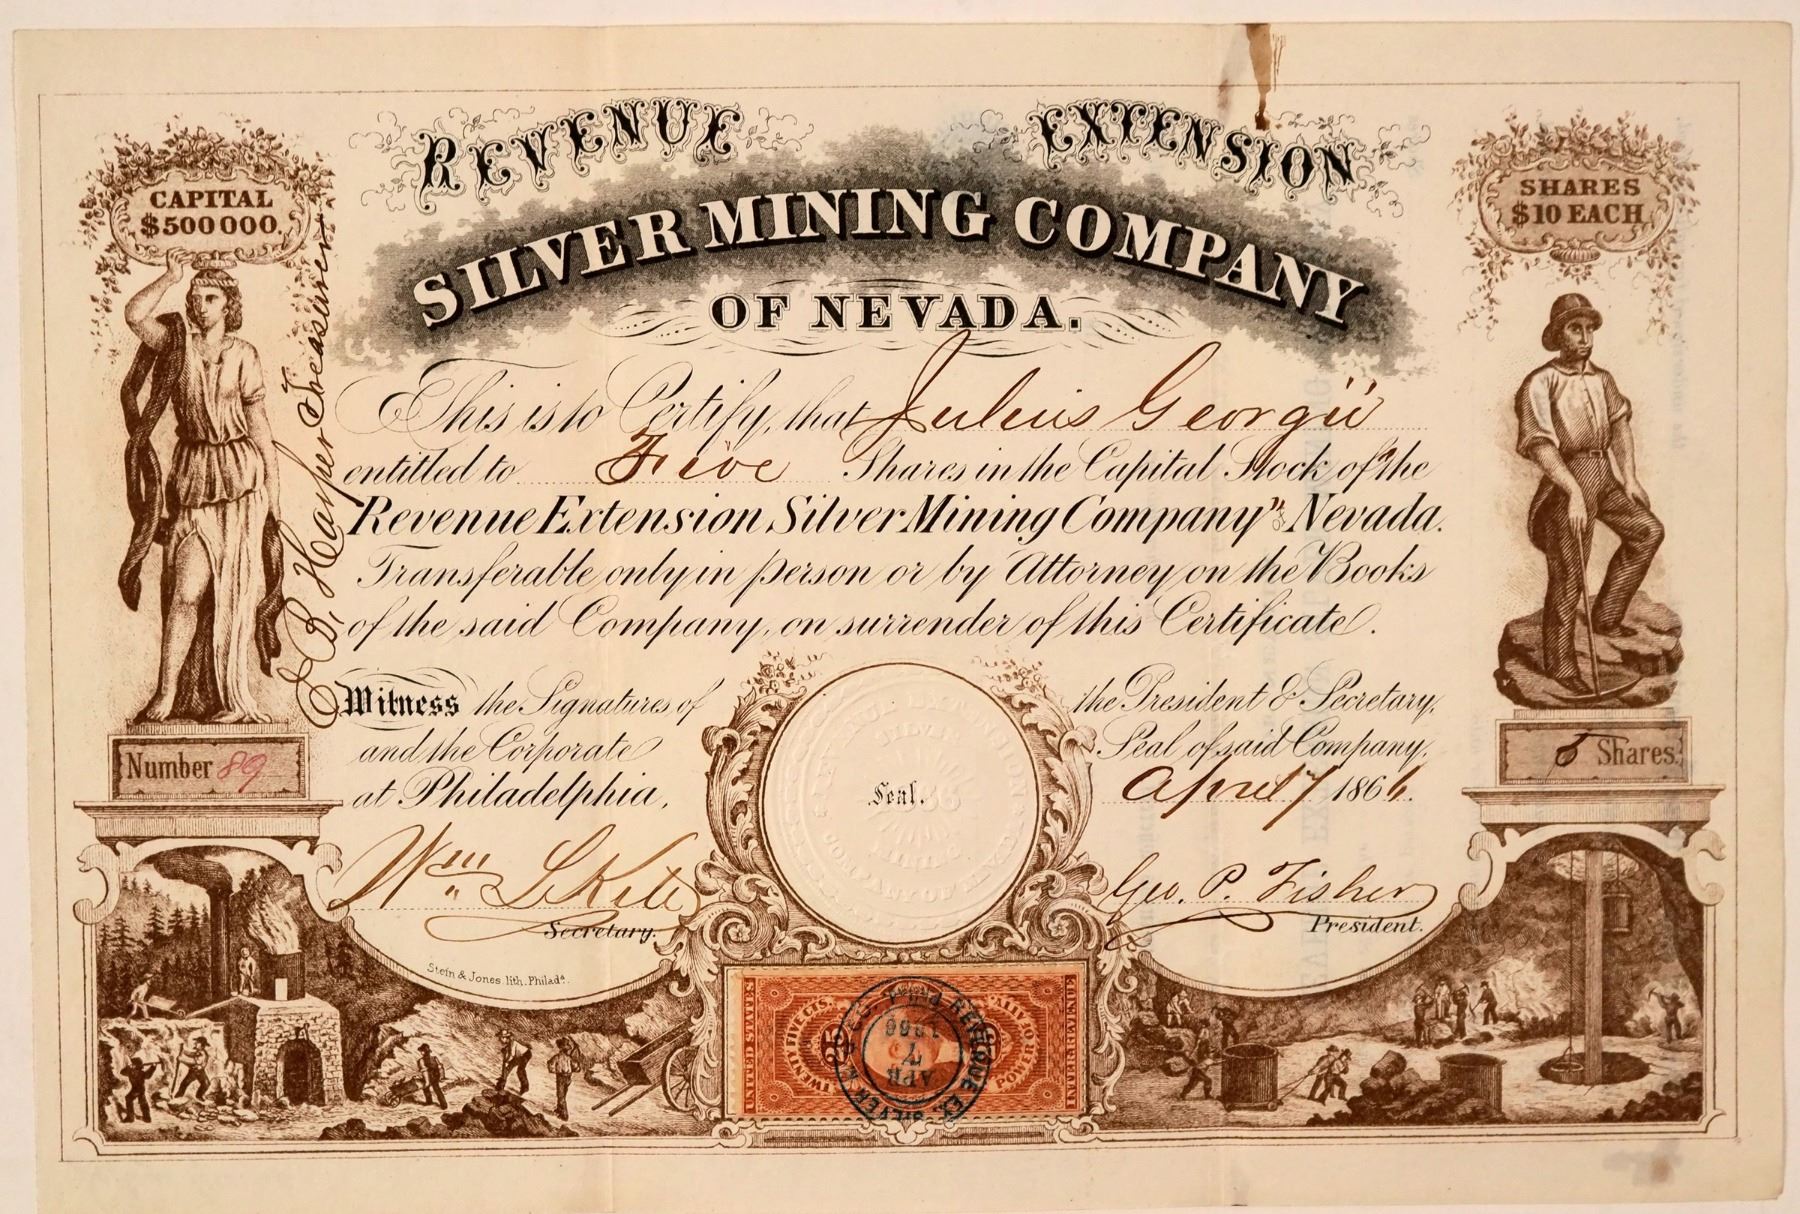 REVENUE EXTENSION
SILVER MINING COMPANY
OF NEVADA.
CAPITAL
$500000.
SHARES
$10 EACH
This is to Certify, that Julius Georgii
entitled to Five Shares in the Capital Stock of "the
Revenue Extension Silver Mining Company" of Nevada.
Transferable only in person or by Attorney on the Books
of the said Company, on surrender of this Certificate.
E. B. Harper Treasurer
Witness the Signatures of the President & Secretary,
and the Corporate Seal of said Company,
at Philadelphia, April 7 1866.
Number 89
5 Shares.
Seal.
Geo. P. Fisher
Secretary.
President.
Stein & Jones lith. Philada.
UNITED STATES
TWENTY FIVE CTS.
POWER OF ATT'Y
INTER. REVENUE
APR
7
1866